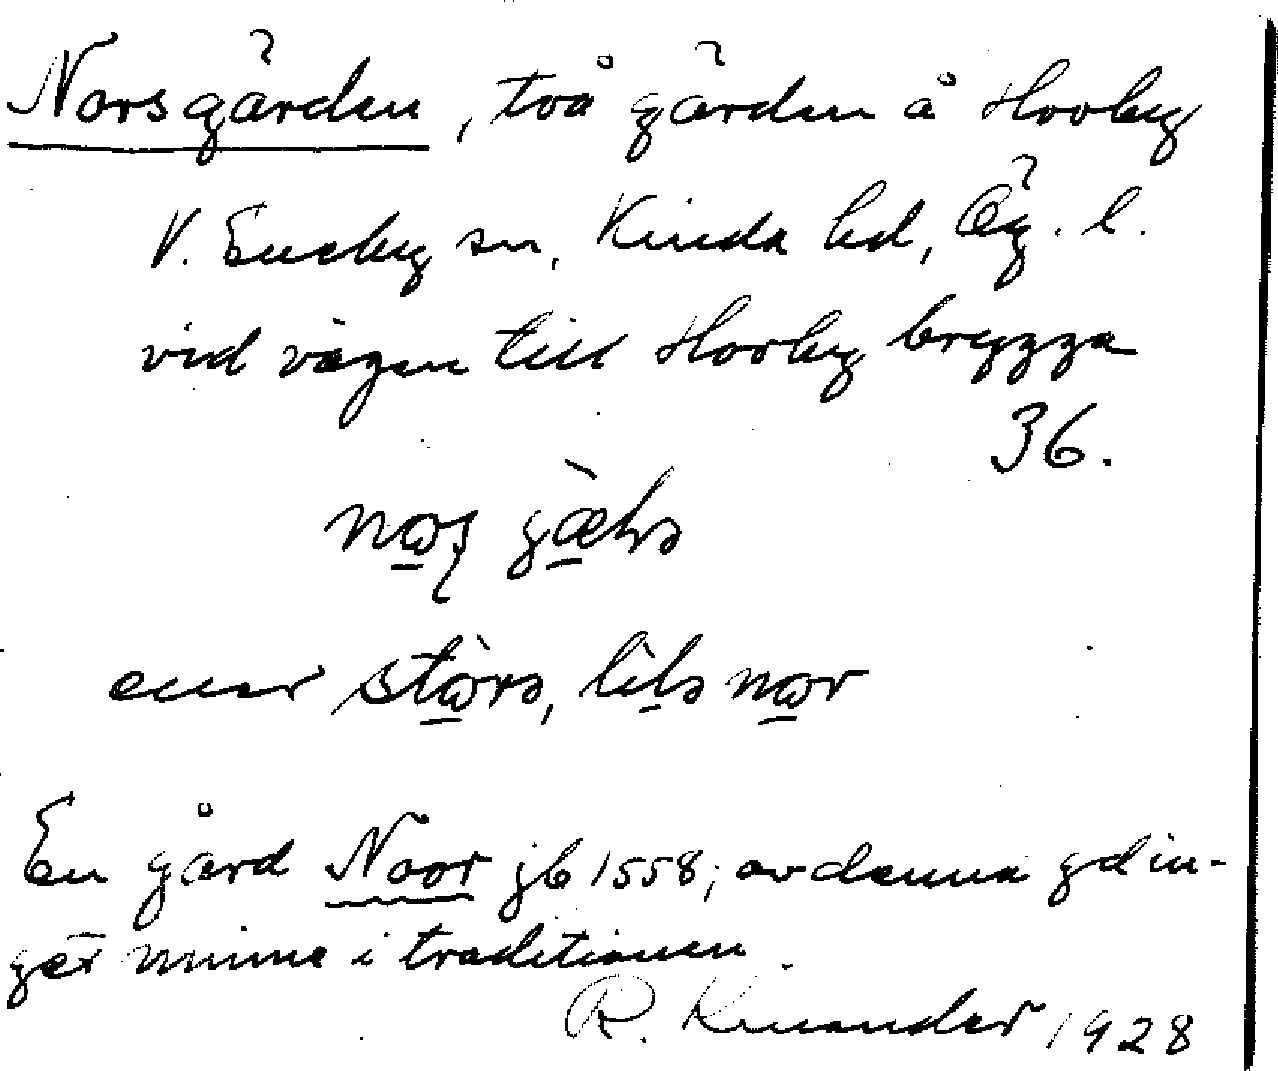 Norsgården, två gården å Hovby
V. Eneby sn, Kinda hd, Ög. l.
vid vägen till Hovby brygga
36.
eller
En gård Noor jb 1558; av denna gd in-
get minne i traditionen.
R. Kenander 1928